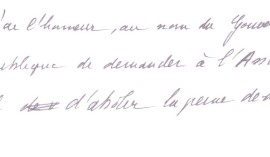 j'ai l'honneur, au nom du Gouve
publique de demander à l'Ass
d'abolir la peine de m